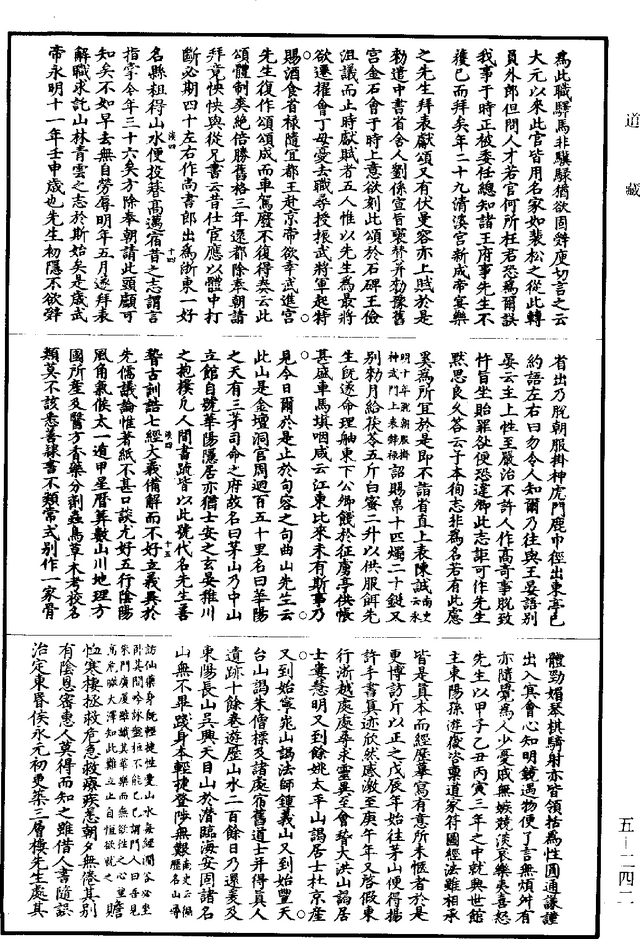 道藏
為此職驛馬非驥騄猶欲固辭庾切言之云
大元以來此官皆用名家如裴松之從此轉
員外郎但問人才若官何所枉君恐爲爾誤
我事于時正被委任總知諸王府事先生不
獲已而拜矣年二十九清溪宮新成帝宴樂
之先生拜表獻頌又有伏曼容亦上賦於是
勑遣中書省舍人劉係宣旨褒讚并勒豫舊
宮金石會于時上意欲刻此頌於石碑王儉
沮議而止時獻賦者五人惟以先生爲最將
欲遷擢會丁母憂去職尋授振武將軍起特
賜酒食省祿隨宜都王赴京帝欲幸武進宮
先生復作頌頌成而車駕廢不復得奏云此
頌體制爽絕倍勝舊格三年還都除奉朝請
拜竟怏怏與從兄書云昔仕宦應以體中打
斷必期四十左右作尚書郎出爲浙東一好
漢四 十四
名縣粗得山水便投簪高邁宿昔之志謂言
指掌今年三十六矣方除奉朝請此頭顱可
知矣不如早去無自勞辱明年五月遂拜表
解職求託山林青雲之志於斯始矣是歲武
帝永明十一年壬申歲也先生初隱不欲辭
省出乃脫朝服掛神虎門鹿巾徑出東亭已
約語左右曰勿令人知爾乃往與王晏語別
晏云主上性至嚴治不許人作高奇事脫致
忤旨坐貽罪咎便恐違卿此志詎可作先生
默思良久答云予本徇志非爲名若有此慮
奚爲所宜於是即不詣省直上表陳誠南史云永
明十年脫朝服掛神武門上表辭祿詔賜帛十匹燭二十鋌又
別勑月給茯苓五斤白蜜二升以供服餌先
生既遂命理舳東下公卿餞於征虜亭供帳
甚盛車馬填咽咸云江東比來未有斯事乃
見今日爾於是止於句容之句曲山先生云
此山是金壇洞宮周迴百五十里名曰華陽
之天有三茅司命之府故名曰茅山乃中山
立館自號華陽隱居亦猶士安之玄晏稚川
之抱樸凡人間書疏皆以此號代名先生善
漢四 十五
稽古訓詁七經大義備解而不好立義異於
先儒議論惟著紙不甚口談尤好五行陰陽
風角氣候太一遁甲星曆算數山川地理方
國所產及醫方香藥分劑蟲鳥草木考校名
類莫不該悉善隸書不類常式別作一家骨
體勁媚琴棋騎射亦皆領括為性圓通謙謹
出入冥會心如明鏡遇物便了言無煩舛有
亦隨覺為人少憂戚無嫉競淡哀樂夷喜怒
先生以甲子乙丑丙寅三年之中就興世館
主東陽孫遊嶽咨稟道家符圖經法雖相承
皆是真本而經歷摹寫有意所未愜者於是
更博訪斤以正之戊辰年始往茅山便得楊
許手書真迹欣然感激至庚午年又啓假東
行浙越處處尋求靈異至會稽大洪山謁居
士婁慧明又到餘姚太平山謁居士杜京產
又到始寧山謁法師鍾義山又到始豐天
台山謁朱僧標及諸處宿舊道士并得真人
遺跡十餘卷遊歷山水二百餘日乃還爰及
東陽長山吳興天目山於潛臨海安固諸名
山無不畢踐身本輕捷登陟無艱南史云徧歷名山尋
訪仙藥身既輕捷性愛山水每經澗谷必坐臥其間吟詠盤桓不能已已謂門人曰吾見
朱門廣廈雖識其華樂而無欲往之心望高巖瞰大澤知此難立止自恒欲就之贍
恤寒棲拯救危急救療疾恙朝夕無倦其別
有陰恩密惠人莫得而知之雖借人書隨誤
治定東昏侯永元初更築三層樓先生處其
五－二四二